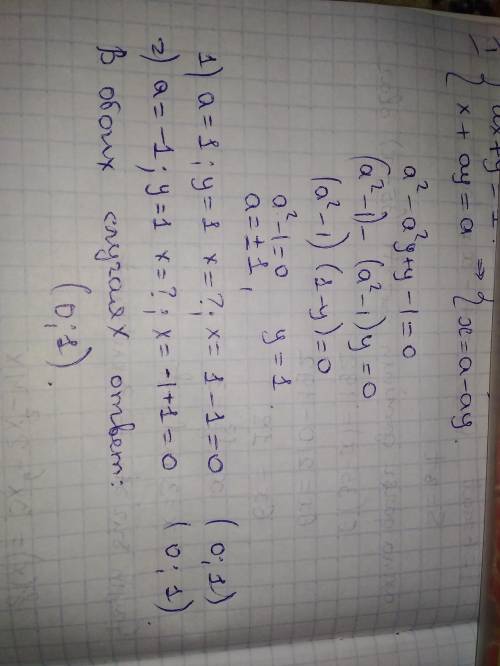 1. { ax+y=1
x+ay=a ⇒ { x=a-ay.
a²-a²y+y-1=0
(a²-1)-(a²-1)y=0
(a²-1)(1-y)=0
a²-1=0 y=1.
a=±1,
1) a=1; y=1 x=?; x=1-1=0 (0;1)
2) a=-1; y=1 x=?; x=-1+1=0 (0;1)
В обоих случаях ответ:
(0;1).